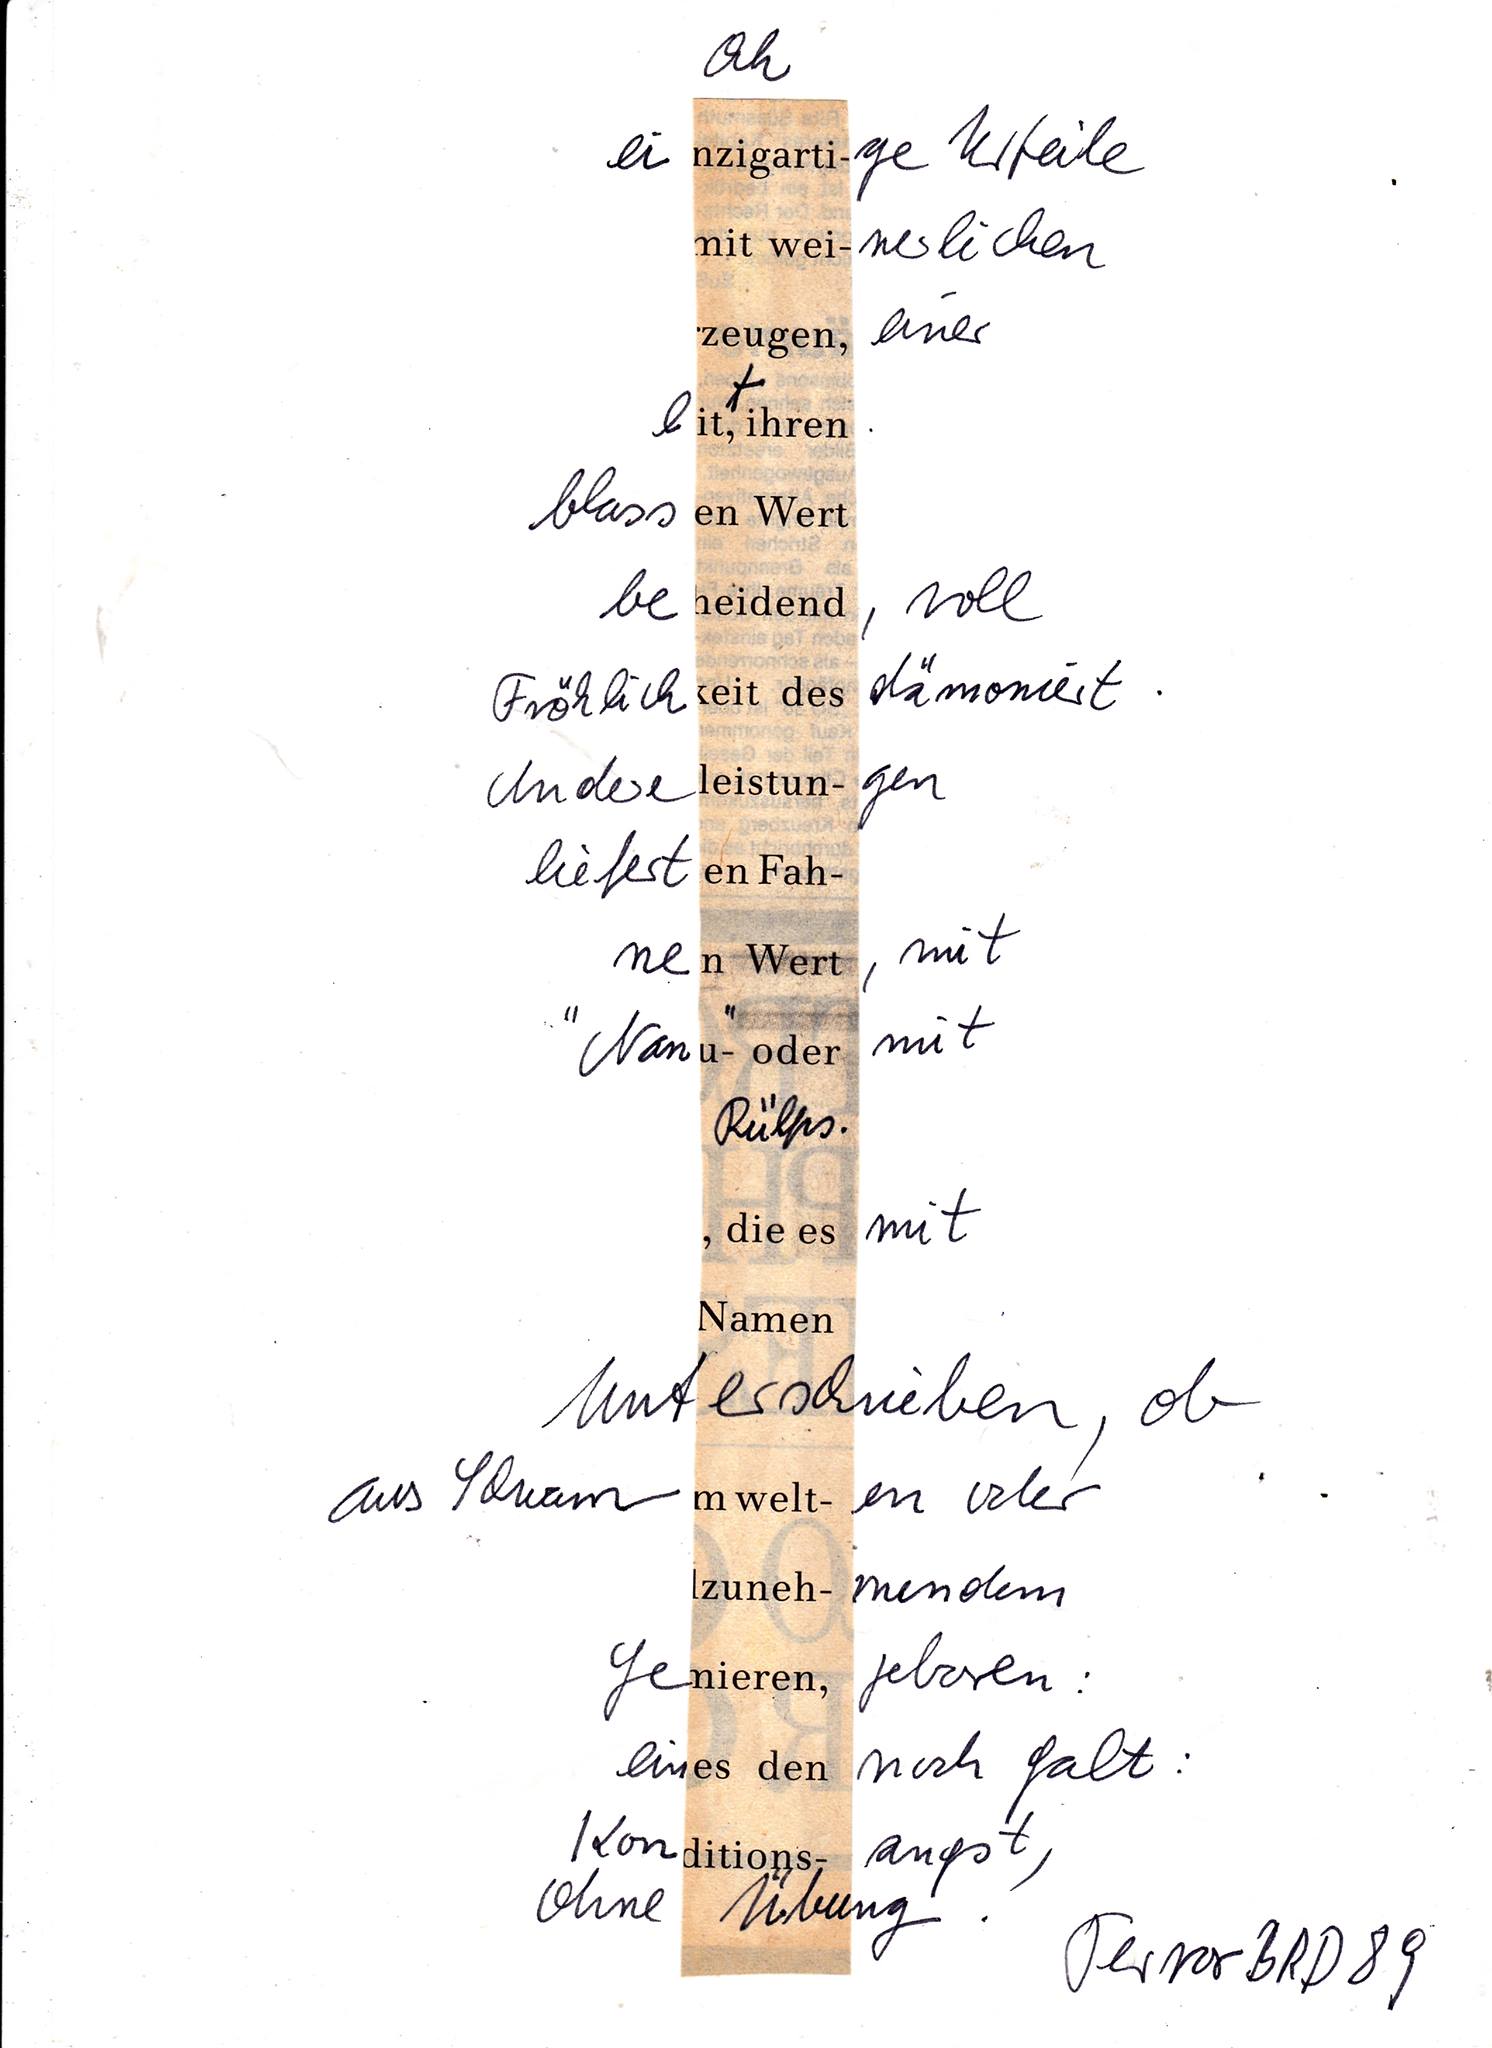 Oh
einzigarti-ge Urteile
mit wei-nerlichen
rzeugen, einer
bit, ihren
blassen Wert
beheidend, voll
Fröhlichkeit des dämoniert.
Andere leistun-gen
liefert en Fah-
nen Wert, mit
"Nanu-" oder mit
Rülps.
, die es mit
Namen
Unterschrieben, ob
aus Scham m welt-en oder
lzuneh-mendem
Genieren, geboren:
eines den noch galt:
Konditions-angst,
Ohne Übung.
Terror BRD 89